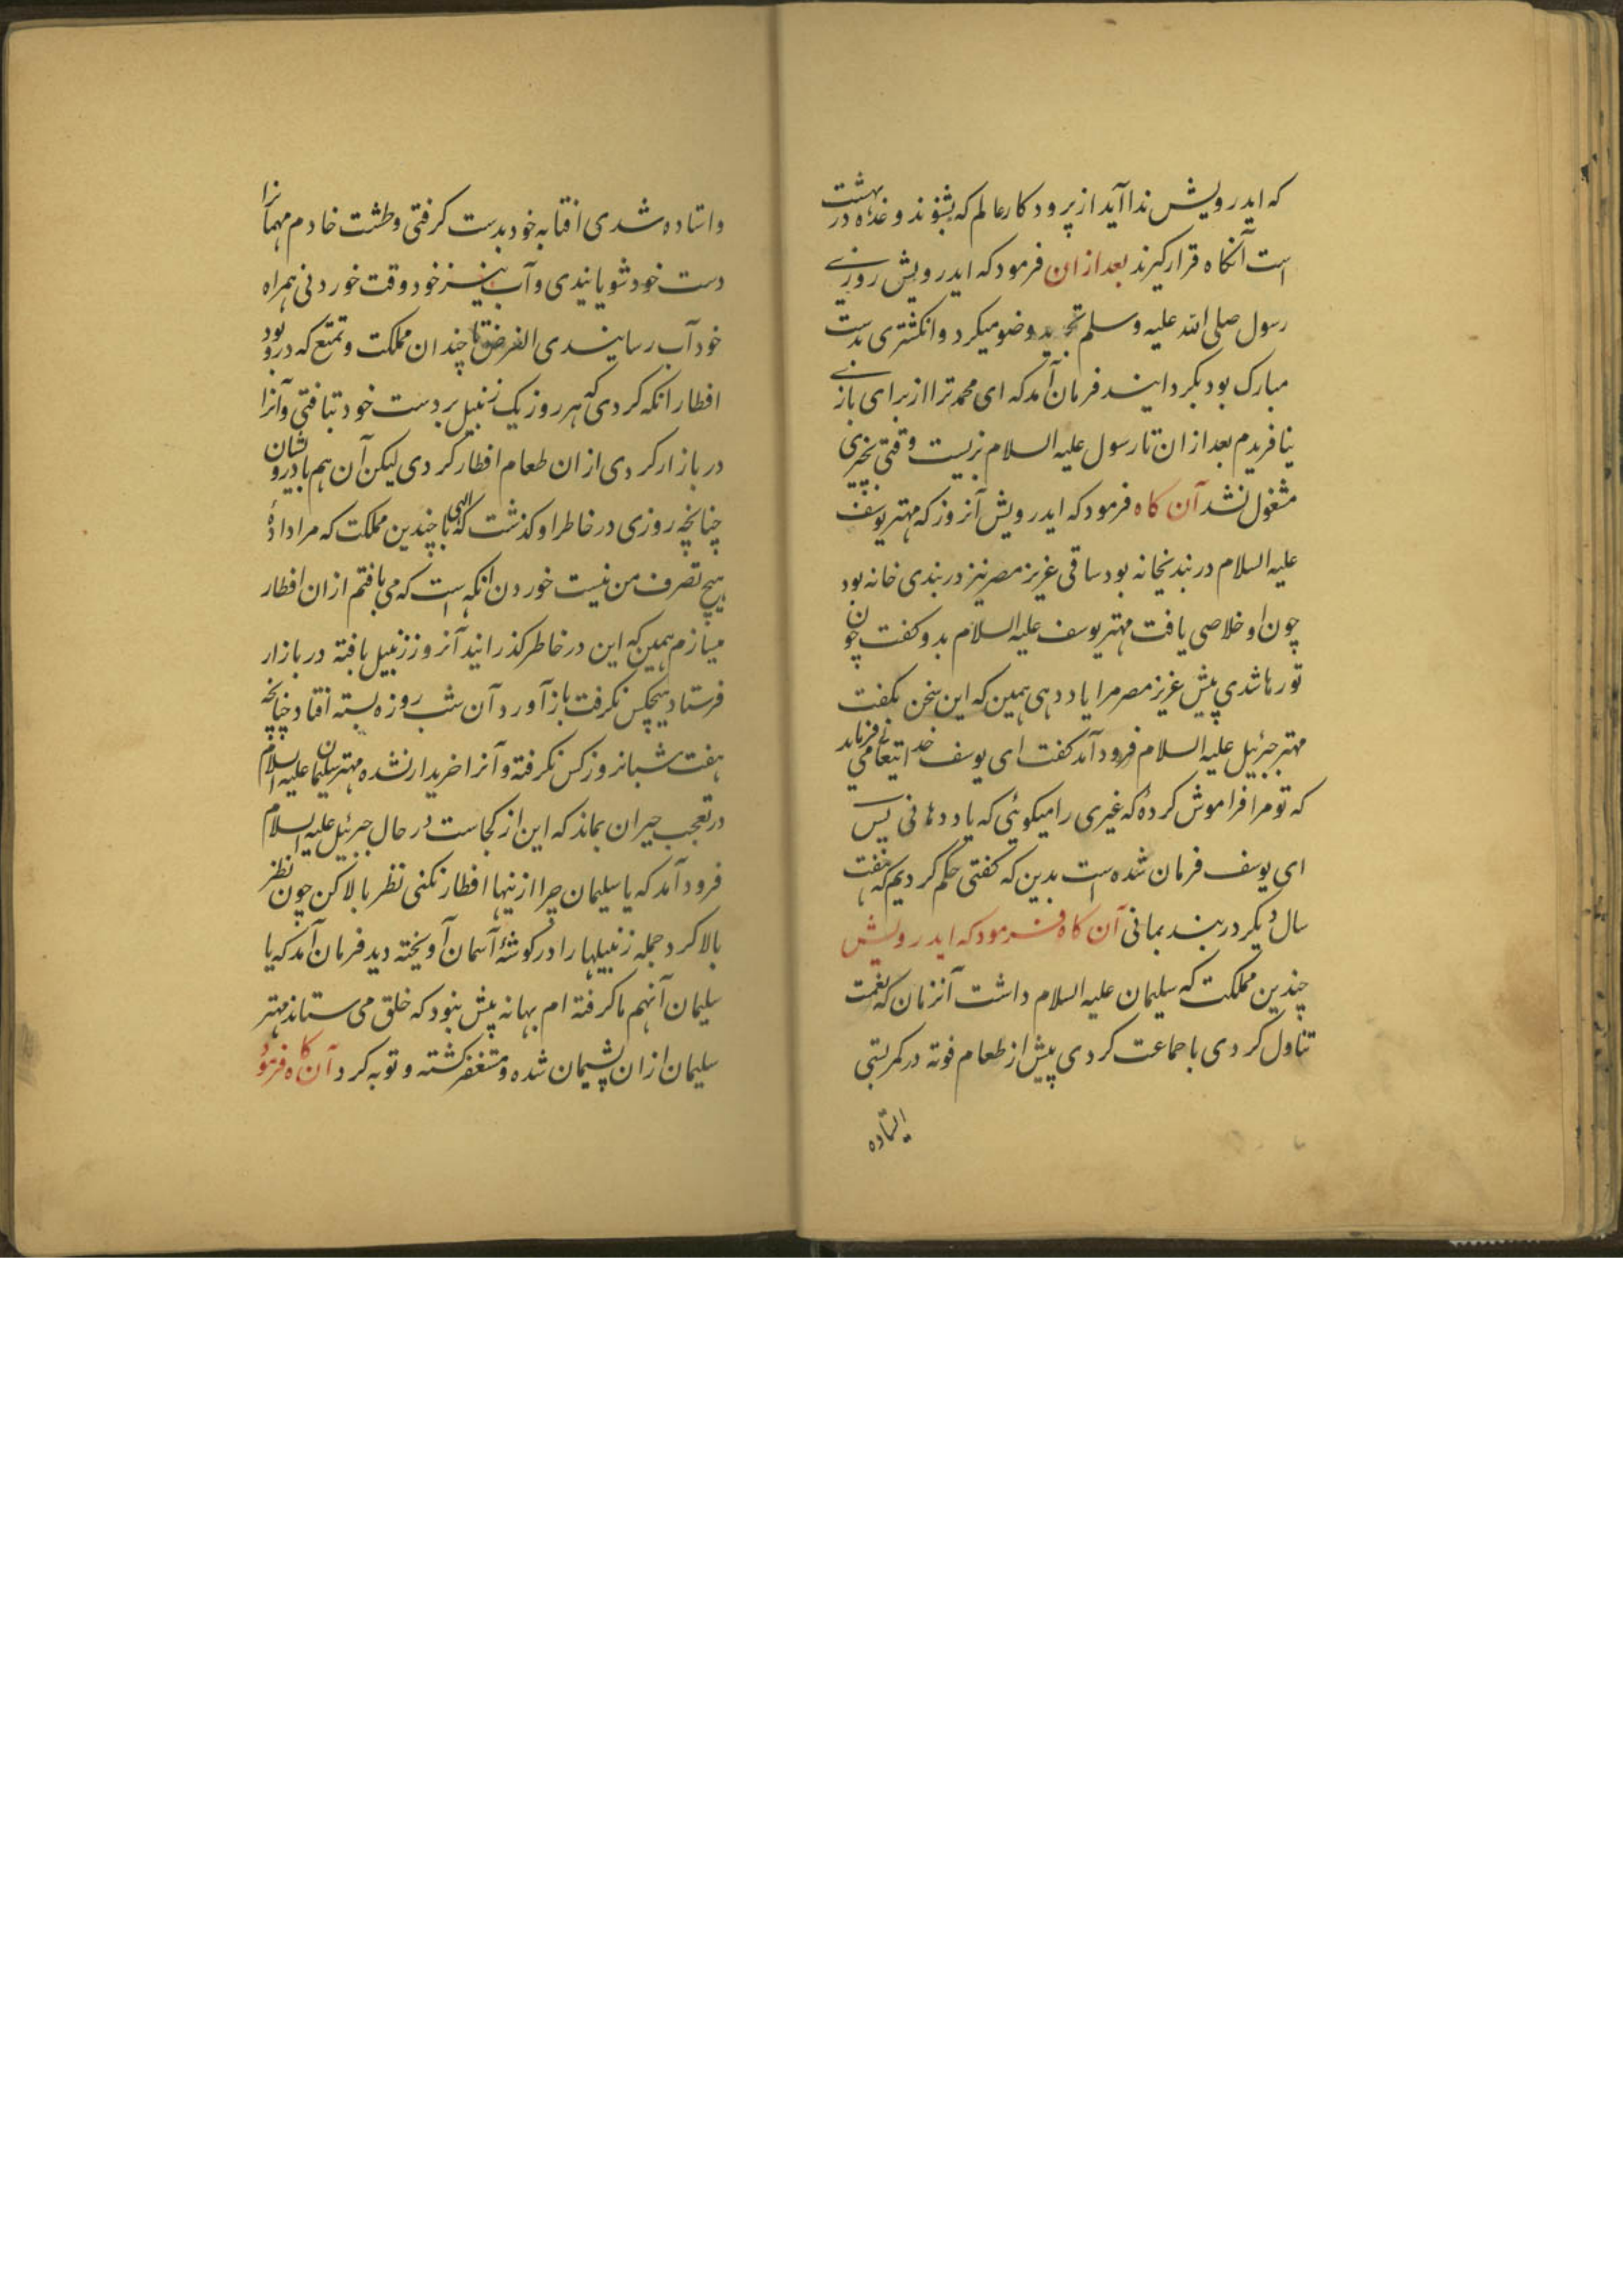 که ایدرویش ندا آید از پرودکار عالم که بشوند وعده در بهشت
است آنکاه قرار کیرند بعد ازان فرمود که ایدرویش روزے
رسول صلی الله علیه وسلم تجدید وضو میکرد و انکشتری بدست
مبارک بود بکردانید فرمان آمد که ای محمد ترا از برای بازے
نیافریدم بعد ازان تا رسول علیه السلام بزیست وقتی بچیزی
مشغول نشد آن کاه فرمود که ایدرویش آنروز که مهتر یوسف
علیه السلام در بندیخانه بود ساقی عزیز مصر نیز در بندی خانه بود
چون او خلاصی یافت مهتر یوسف علیه السلام بدو کفت چون
تو رها شدی پیش عزیز مصر مرا یاد دهی همین که این سخن بکفت
مهتر جبرئیل علیه السلام فرود آمد کفت ای یوسف خدایتعالے می فرماید
که تو مرا فراموش کردهٔ که غیری را میکوئی که یاد دهانی پس
ای یوسف فرمان شده است بدین که کفتی حکم کردیم که هفت
سال دیکر در بند بمانی آن کاه فرمود که ایدرویش
چندین مملکت که سلیمان علیه السلام داشت آنزمان که نعمت
تناول کردی با جماعت کردی پیش از طعام فوته در کمر بستی
ایستاده
واستاده شدی افتابه خود بدست کرفتی وطشت خادم مهمانرا
دست خود شویانیدی و آب نیز خود وقت خوردنی همراه
خود آب رسانیدی الغرض با چندان مملکت وتمتع که درو بود
افطار انکه کردی که هر روز یک زنبیل بر دست خود تبافتی وآنرا
در بازار کردی ازان طعام افطار کردی لیکن آن هم با درویشان
چنانچه روزی در خاطر او کذشت که الهی با چندین مملکت که مرا دادهٔ
هیچ تصرف من نیست خوردن انکه است که می بافتم ازان افطار
میسازم همین که این در خاطر کذرانید آنروز زنبیل بافته در بازار
فرستاد هیچکس نکرفت باز آورد آن شب روزه بسته افتاد چنانچه
هفت شبانروز کس نکرفته و آنرا خریدار نشده مهتر سلیمان علیه السلام
در تعجب حیران بماند که این از کجاست در حال جبرئیل علیه السلام
فرود آمد که یا سلیمان چرا ازینها افطار نکنی نظر بالا کن چون نظر
بالا کرد جمله زنبیلها را در کوشهٔ آسمان آویخته دید فرمان آمد که یا
سلیمان آنهم ما کرفته ام بهانه پیش نبود که خلق می ستاند مهتر
سلیمان ازان پشیمان شده و مستغفر کشته و توبه کرد آن کاه فرمود